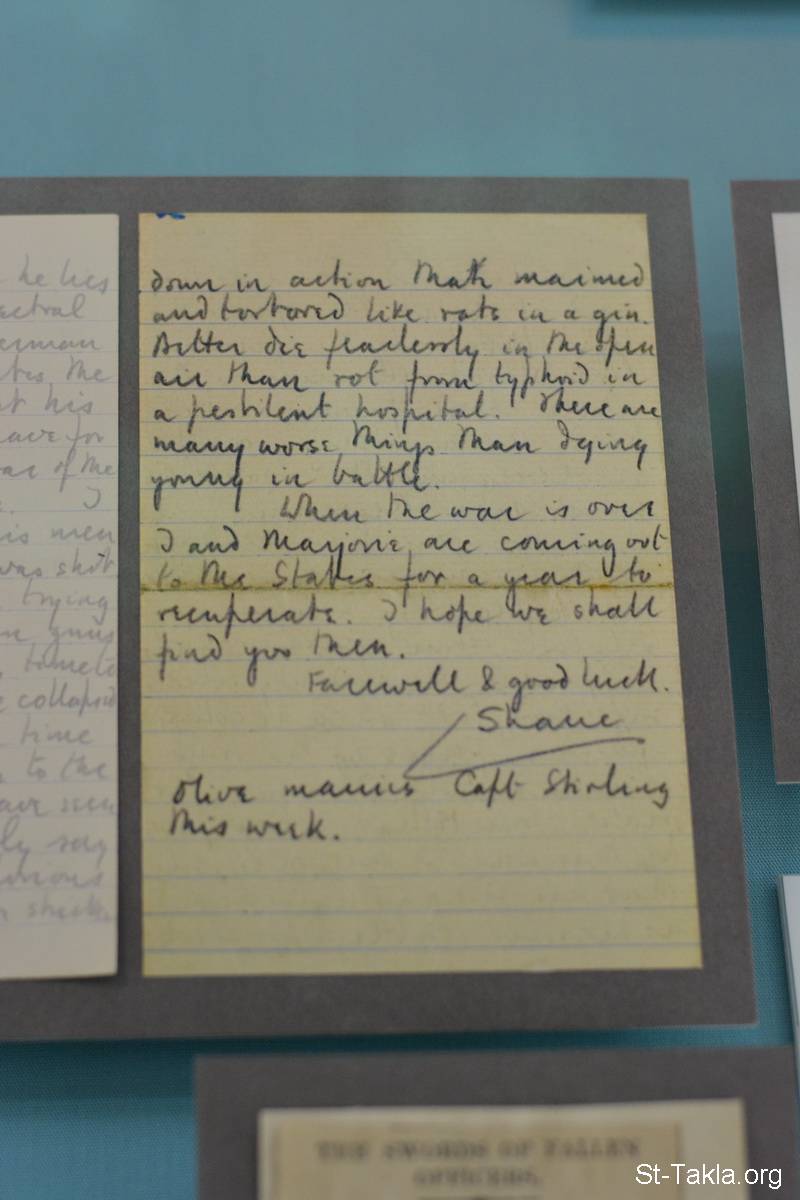 he lies
man
the
his
for
of the
I
is men
was shot
trying
guns
collapsed
time
to the
say
down in action than maimed
and tortored like rats in a gin.
Better die fearlessly in the open
air than rot from typhoid in
a pestilent hospital. There are
many worse things than dying
young in battle.
When the war is over
I and Marjorie are coming out
to the States for a year to
recuperate. I hope we shall
find you then.
Farewell & good luck.
Shane
Olive marries Capt Stirling
this week.
THE SWORDS OF FALLEN
OFFICERS.
St-Takla.org